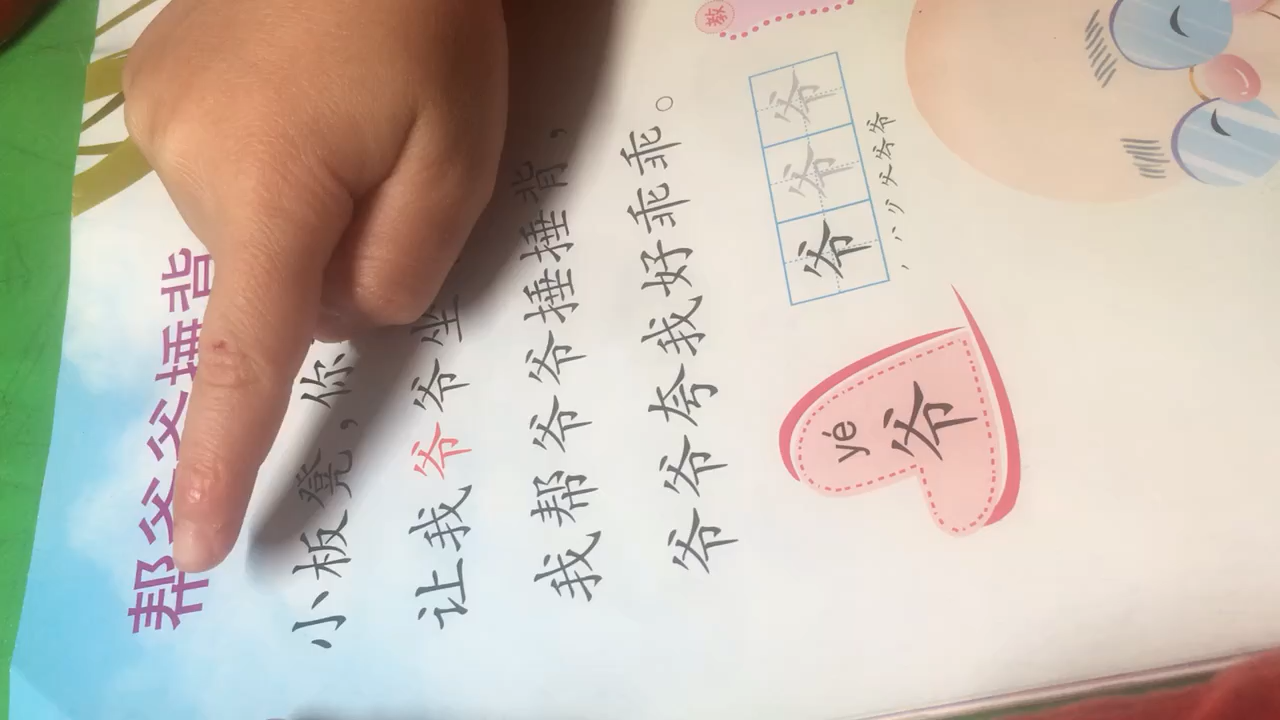 帮爷爷捶背
小板凳，你
让我爷爷坐
我帮爷爷捶捶背，
爷爷夸我好乖乖。
yé
爷
爷爷爷
教